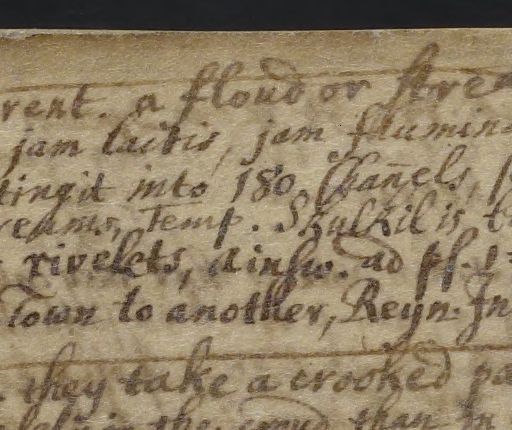 rent. a floud or stre
jam lactis, jam flumin
tingit into 180. Chañels,
reams, Temp. Skulkil is
rivelets, Ainsw. ad ps. 1
Town to another, Reyn. In
they take a crooked pa
in the than in